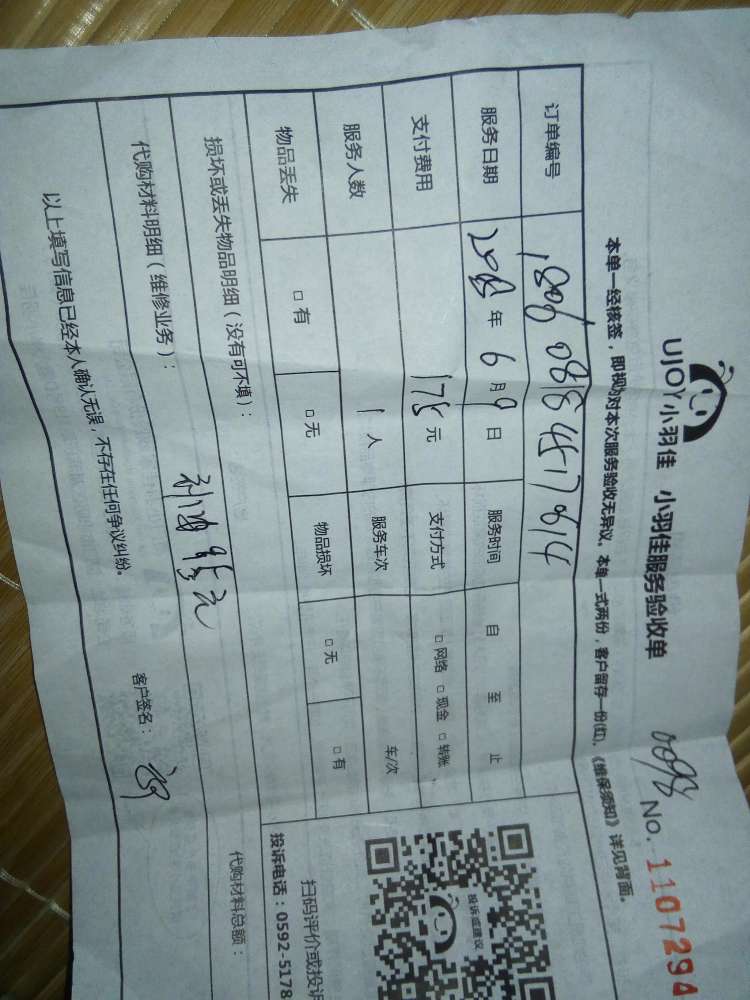 UJOY小羽佳 小羽佳服务验收单 No.1107294
本单一经核签，即视为对本次服务验收无异议。本单一式两份，客户留存一份(红)，《维保须知》详见背面。
订单编号
服务日期 年 6 月 9 日 服务时间 自 至 止
支付费用 175 元 支付方式 □网络 □现金 □转账
服务人数 1 人 服务车次 车/次
物品丢失 □有 □无 物品损坏 □无 □有
损坏或丢失物品明细（没有可不填）：
代购材料明细（维修业务）： 代购材料总额：
以上填写信息已经本人确认无误，不存在任何争议纠纷。 客户签名：
投诉或建议
扫码评价或投诉
投诉电话：0592-5178